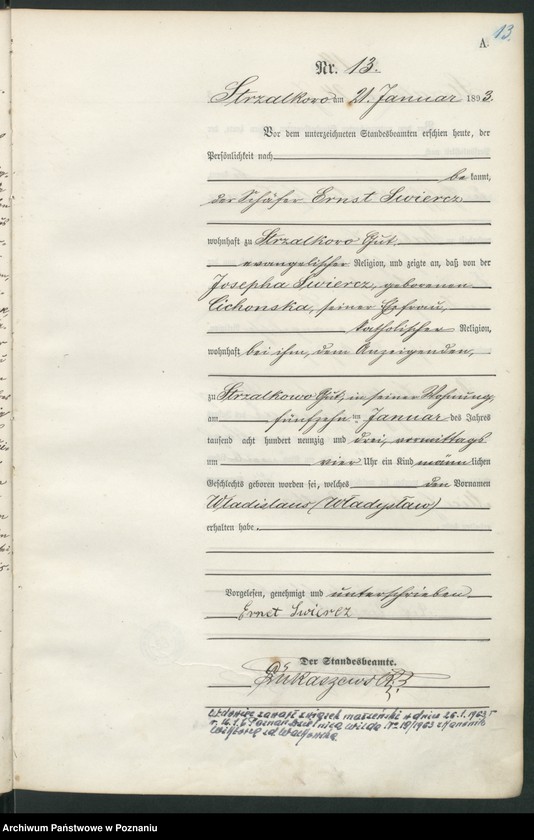 13.
A.
Nr. 13.
Strzalkowo am 21. Januar 1893.
Vor dem unterzeichneten Standesbeamten erschien heute, der
Persönlichkeit nach
be kannt,
der Schäfer Ernst Swiercz,
wohnhaft zu Strzalkowo Gut,
evangelischer Religion, und zeigte an, daß von der
Josepha Swiercz, geborenen
Cichonska, seiner Ehefrau,
katholischer Religion,
wohnhaft bei ihm, dem Anzeigenden,
zu Strzalkowo Gut, in seiner Wohnung,
am fünfzehn ten Januar des Jahres
tausend acht hundert neunzig und drei, vormittags
um vier Uhr ein Kind männ lichen
Geschlechts geboren worden sei, welches den Vornamen
Wladislaus (Władysław)
erhalten habe.
Vorgelesen, genehmigt und unterschrieben
Ernst Swiercz
Der Standesbeamte.
Łukaszewski
zawarł związek małżeński w dniu 26.1.1963 r
Poznań Wilda Nr 19/1963 z
Archiwum Państwowe w Poznaniu